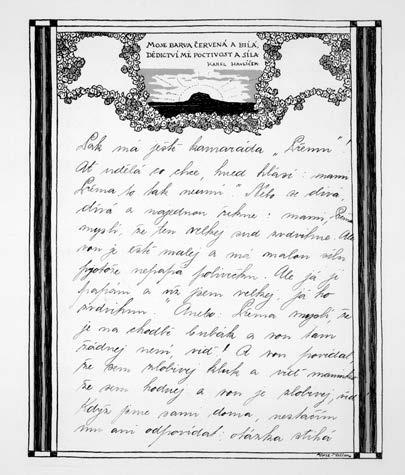 MOJE BARVA ČERVENÁ A BÍLÁ,
DĚDICTVÍ MÉ POCTIVOST A SÍLA
KAREL HAVLÍČEK
Pak má ještě kamaráda „Přému“!
Ať udělá co chce, hned hlásí: mami
Přéma to tak neumí“. Nebo se dívá,
dívá a najednou řekne: mami, Přéma
myslí, že ten velkej sud zvdvihne. Ale
von je eště malej a má malou sílu
protože nepapá polívčičku. Ale já jí
papám a už jsem velkej: já ho
zvdvihnu.“ Anebo: Přéma myslí, že
je na chodbě bubák a von tam
žádnej není, viď! A von povídal,
že sem zlobivej kluk a viď maminko
že sem hodnej a von je zlobivej, viď!
Když jsme sami doma, nestačím
mu ani odpovídat: otázka stíhá